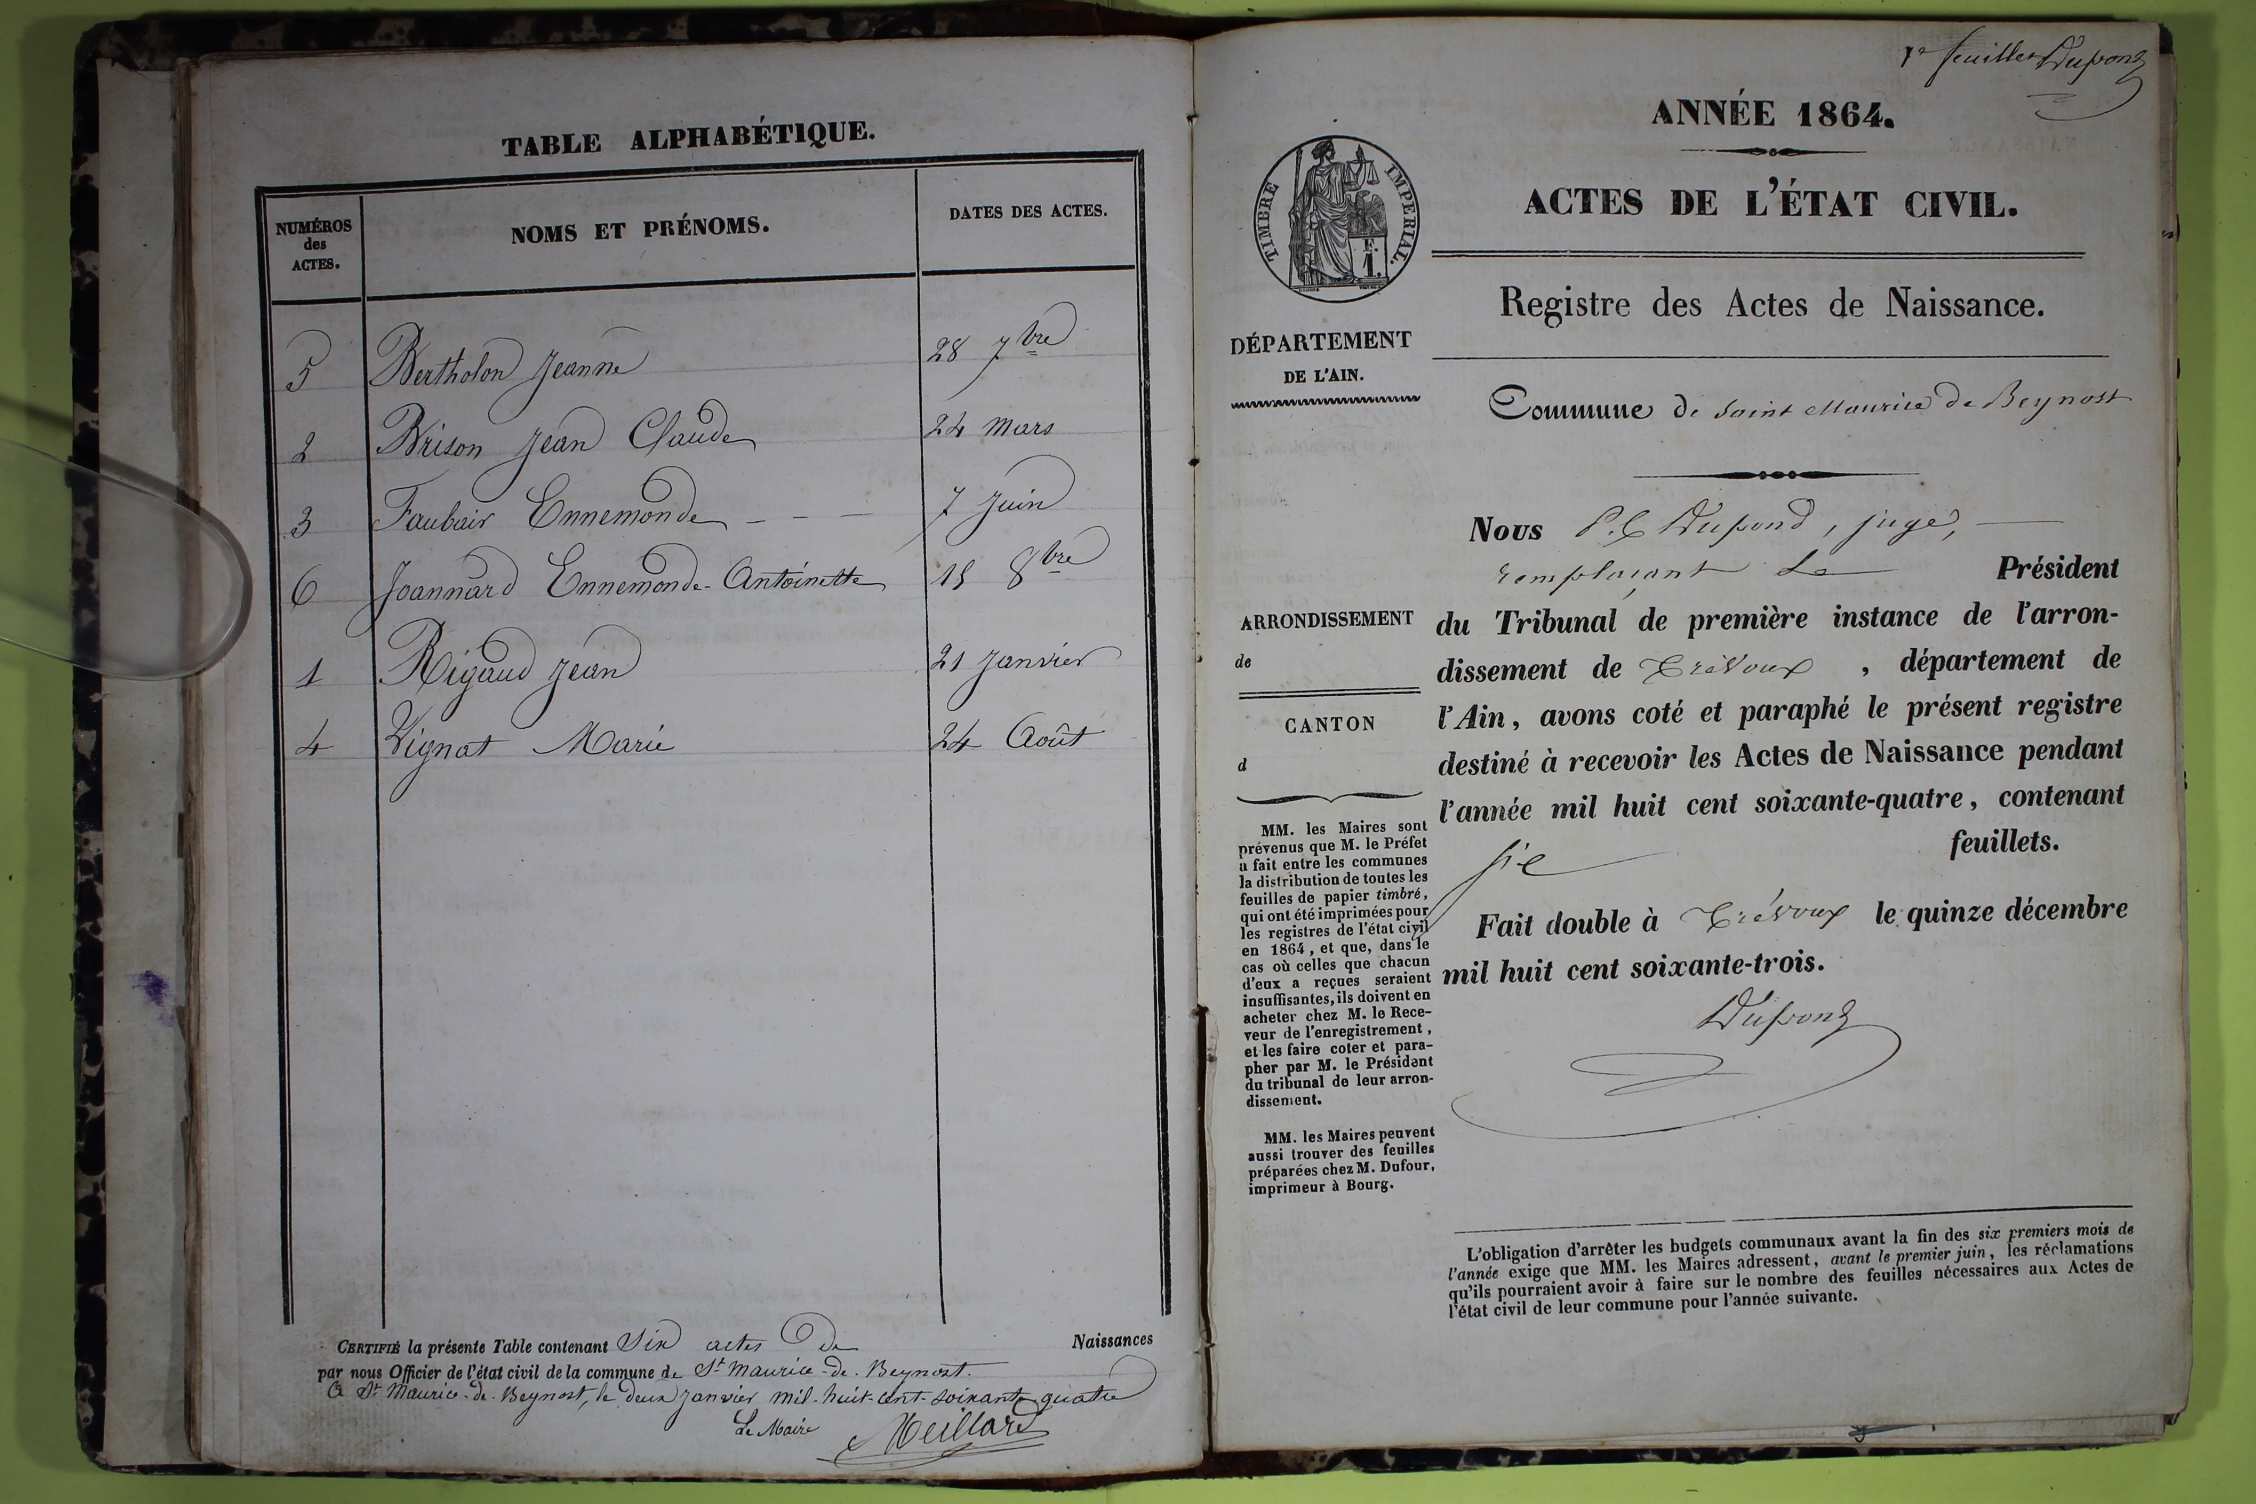 TABLE ALPHABÉTIQUE.
NUMÉROS
des
ACTES.
NOMS ET PRÉNOMS.
DATES DES ACTES.
5 Bertholon Jeanne 28 7bre
2 Brison Jean Claude 24 Mars
3 Faubair Ennemonde - - - 7 Juin
6 Joannard Ennemonde-Antoinette 15 8bre
1 Rigaud Jean 21 Janvier
4 Vignat Marie 24 Août
CERTIFIÉ la présente Table contenant Six actes de Naissances
par nous Officier de l'état civil de la commune de St Maurice-de-Beynost.
A St Maurice-de-Beynost, le deux Janvier mil-huit-cent-soixante quatre
Le Maire Meillard
1er feuillet Dupond
ANNÉE 1864.
ACTES DE L'ÉTAT CIVIL.
TIMBRE IMPÉRIAL.
F.
1.
Registre des Actes de Naissance.
DÉPARTEMENT
DE L'AIN.
Commune de Saint Maurice de Beynost
Nous P. C Dupond, juge,
remplaçant Le Président
du Tribunal de première instance de l'arron-
dissement de Trévoux, département de
l'Ain, avons coté et paraphé le présent registre
destiné à recevoir les Actes de Naissance pendant
l'année mil huit cent soixante-quatre, contenant
six feuillets.
Fait double à Trévoux le quinze décembre
mil huit cent soixante-trois.
Dupond
ARRONDISSEMENT
de
CANTON
d
MM. les Maires sont
prévenus que M. le Préfet
a fait entre les communes
la distribution de toutes les
feuilles de papier timbré,
qui ont été imprimées pour
les registres de l'état civil
en 1864, et que, dans le
cas où celles que chacun
d'eux a reçues seraient
insuffisantes, ils doivent en
acheter chez M. le Rece-
veur de l'enregistrement,
et les faire coter et para-
pher par M. le Président
du tribunal de leur arron-
dissement.
MM. les Maires peuvent
aussi trouver des feuilles
préparées chez M. Dufour,
imprimeur à Bourg.
L'obligation d'arrêter les budgets communaux avant la fin des six premiers mois de
l'année exige que MM. les Maires adressent, avant le premier juin, les réclamations
qu'ils pourraient avoir à faire sur le nombre des feuilles nécessaires aux Actes de
l'état civil de leur commune pour l'année suivante.